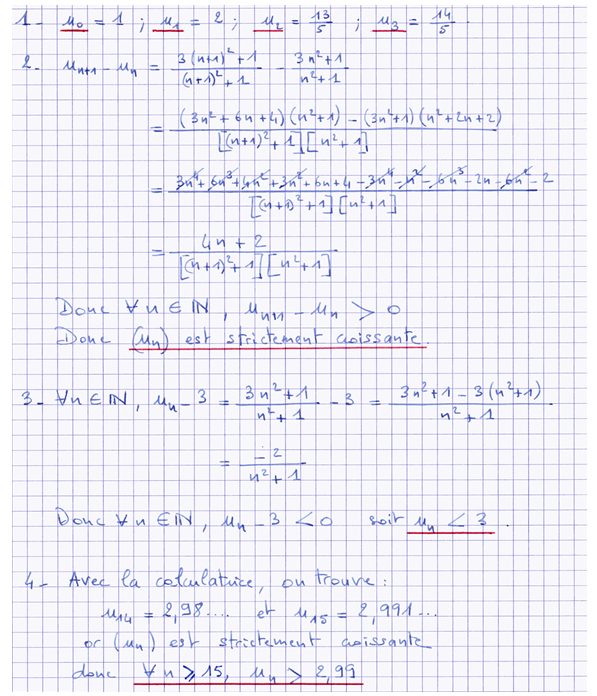 1- u₀ = 1 ; u₁ = 2 ; u₂ = 13/5 ; u₃ = 14/5 .
2- uₙ₊₁ - uₙ = (3(n+1)²+1)/((n+1)²+1) - (3n²+1)/(n²+1)
= ((3n²+6n+4)(n²+1) - (3n²+1)(n²+2n+2))/([(n+1)²+1][n²+1])
= (3n⁴+6n³+4n²+3n²+6n+4-3n⁴-n²-6n³-2n-6n²-2)/([(n+1)²+1][n²+1])
= (4n+2)/([(n+1)²+1][n²+1])
Donc ∀n∈ℕ, uₙ₊₁ - uₙ > 0
Donc (uₙ) est strictement croissante.
3- ∀n∈ℕ, uₙ-3 = (3n²+1)/(n²+1) - 3 = (3n²+1-3(n²+1))/(n²+1)
= (-2)/(n²+1)
Donc ∀n∈ℕ, uₙ-3 < 0 soit uₙ < 3 .
4- Avec la calculatrice, on trouve :
u₁₄ = 2,98.... et u₁₅ = 2,991...
or (uₙ) est strictement croissante
donc ∀n ⩾ 15, uₙ > 2,99